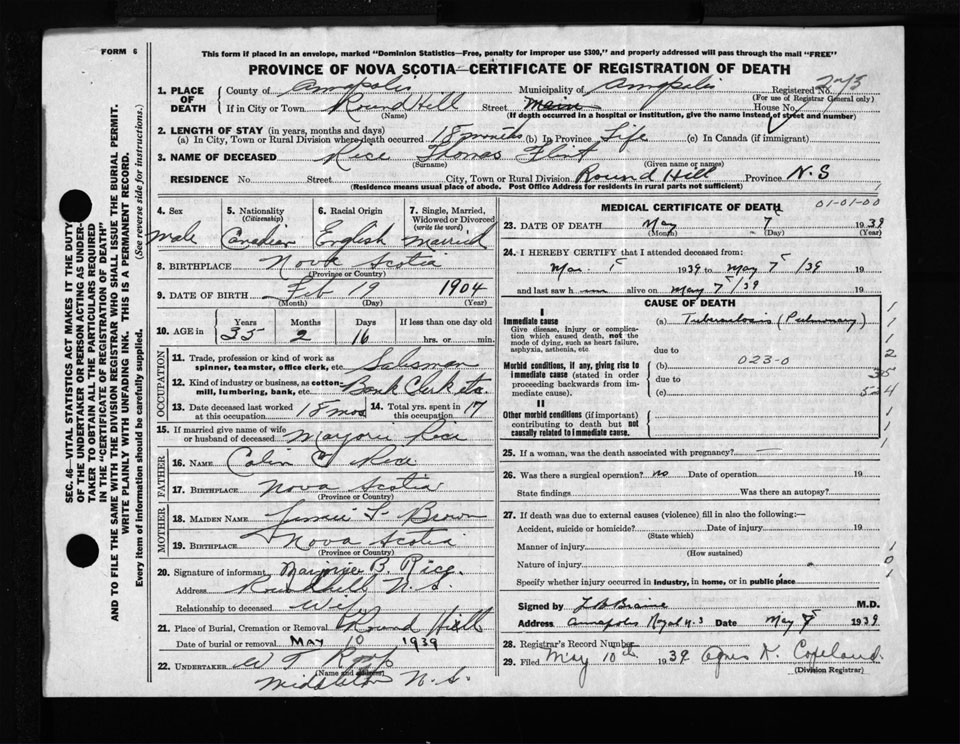 FORM 6
This form if placed in an envelope, marked "Dominion Statistics—Free, penalty for improper use $300," and properly addressed will pass through the mail "FREE"
PROVINCE OF NOVA SCOTIA—CERTIFICATE OF REGISTRATION OF DEATH
1. PLACE OF DEATH County of Annapolis Municipality of Annapolis Registered No.
(For use of Registrar General only)
If in City or Town Round Hill Street Main House No.
(Name) (If death occurred in a hospital or institution, give the name instead of street and number)
2. LENGTH OF STAY (in years, months and days)
(a) In City, Town or Rural Division where death occurred 18 months (b) In Province Life (c) In Canada (if immigrant)
3. NAME OF DECEASED Rice Thomas Flint
(Surname) (Given name or names)
RESIDENCE No. Street City, Town or Rural Division Round Hill Province N.S
(Residence means usual place of abode. Post Office Address for residents in rural parts not sufficient)
SEC. 46—VITAL STATISTICS ACT MAKES IT THE DUTY
OF THE UNDERTAKER OR PERSON ACTING AS UNDER-
TAKER TO OBTAIN ALL THE PARTICULARS REQUIRED
IN THE "CERTIFICATE OF REGISTRATION OF DEATH"
AND TO FILE THE SAME WITH THE DIVISION REGISTRAR WHO SHALL ISSUE THE BURIAL PERMIT.
WRITE PLAINLY WITH UNFADING INK. THIS IS A PERMANENT RECORD.
Every item of information should be carefully supplied. (See reverse side for instructions.)
4. Sex 5. Nationality (Citizenship) 6. Racial Origin 7. Single, Married, Widowed or Divorced (write the word)
male Canadian English married
8. BIRTHPLACE Nova Scotia
(Province or Country)
9. DATE OF BIRTH Feb 19 1904
(Month) (Day) (Year)
10. AGE in Years Months Days If less than one day old
35 2 16 hrs. or min.
OCCUPATION
11. Trade, profession or kind of work as spinner, teamster, office clerk, etc. Salesman
12. Kind of industry or business, as cotton-mill, lumbering, bank, etc. Bank Clerk etc.
13. Date deceased last worked at this occupation 18 mos 14. Total yrs. spent in this occupation 17
15. If married give name of wife or husband of deceased Marjorie Rice
FATHER
16. NAME Colin C Rice
17. BIRTHPLACE Nova Scotia
(Province or Country)
MOTHER
18. MAIDEN NAME Brown
19. BIRTHPLACE Nova Scotia
(Province or Country)
20. Signature of informant Marjorie B. Rice
Address Round Hill, N.S.
Relationship to deceased Wife
21. Place of Burial, Cremation or Removal Round Hill
Date of burial or removal MAY 10 1939
22. UNDERTAKER
(Name and address)
Middleton N.S.
MEDICAL CERTIFICATE OF DEATH 01-01-00
23. DATE OF DEATH May 7 1939
(Month) (Day) (Year)
24. I HEREBY CERTIFY that I attended deceased from:
Mar. 1939 to May 7 /39 19
and last saw h alive on May 7/39 19
CAUSE OF DEATH
I
Immediate cause
Give disease, injury or complication which caused death, not the mode of dying, such as heart failure, asphyxia, asthenia, etc.
(a) Tuberculosis (Pulmonary)
due to
Morbid conditions, if any, giving rise to immediate cause (stated in order proceeding backwards from immediate cause).
(b) 023-0
due to
(c)
II
Other morbid conditions (if important) contributing to death but not causally related to immediate cause.
25. If a woman, was the death associated with pregnancy? —
26. Was there a surgical operation? no Date of operation 19
State findings Was there an autopsy?
27. If death was due to external causes (violence) fill in also the following:—
Accident, suicide or homicide? Date of injury 19
(State which)
Manner of injury
(How sustained)
Nature of injury
Specify whether injury occurred in industry, in home, or in public place
Signed by M.D.
Address Annapolis Royal N.S Date May 8 1939
28. Registrar's Record Number
29. Filed May 10th 1939 Agnes K. Copeland
(Division Registrar)